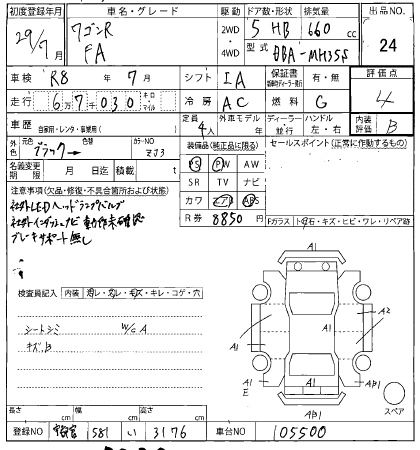 初度登録年月 車名・グレード 駆動 ドア数・形状 排気量 出品NO.
29/7月 ワゴンR FA 2WD 4WD 5 HB 660 cc 24
型式 DBA-MH35S
車検 R8 年 7 月 シフト IA 保証書 有・無 評価点
走行 6万7千030 キロ・マイル 冷房 AC 燃料 G 4
車歴 自家用・レンタ・事業用( ) 定員 4人 外車モデル 年 ディーラー 並行 ハンドル 左・右 内装評価 B
外色 元色 ブラック 色替 カラーNO ZJ3
装備品(純正品に限る) セールスポイント(正常に作動するもの)
名義変更期限 月 日迄 積載 t
PS PW AW
SR TV ナビ
カワ エアB ABS
R券 8850 円
注意事項(欠品・修復・不具合箇所および状態)
社外LEDヘッドランプバルブ
社外インダッシュナビ 動作未確認
ブレーキサポート無し
Fガラス トビ石・キズ・ヒビ・ワレ・リペア跡
検査員記入 内装 汚レ・スレ・キズ・キレ・コゲ・穴
シートシミ W/CA
キズ.B
A1
A1
A2
A1
A1
A1
E
AB1
AB1
スペア
長さ cm 幅 cm 高さ cm
登録NO 581 い 3176 車台NO 105500